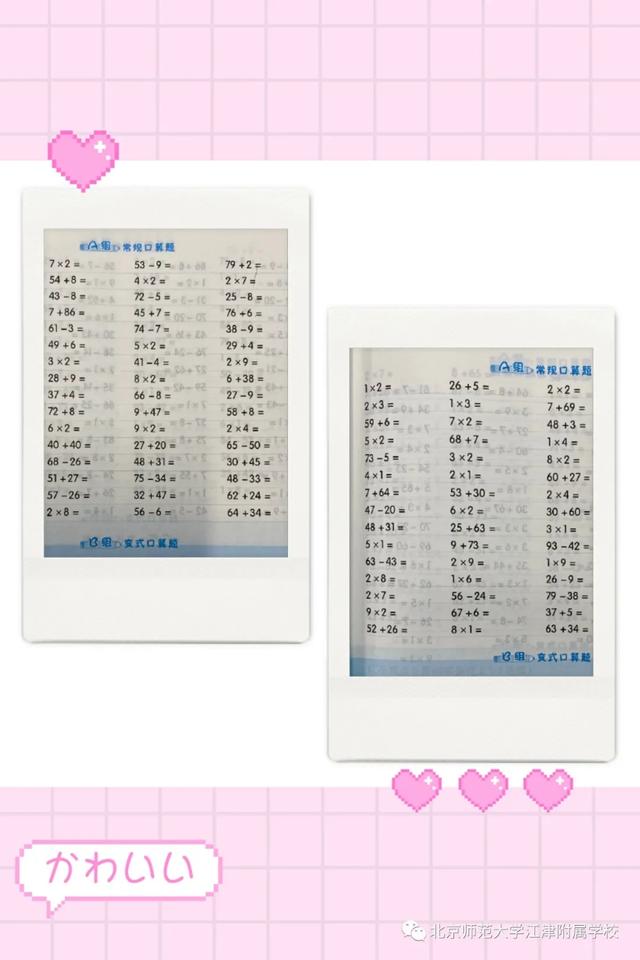 A组 常规口算题
7×2= 53-9= 79+2=
54+8= 4×2= 2×7=
43-8= 72-5= 25-8=
7+86= 45+7= 76+6=
61-3= 74-7= 38-9=
49+6= 5×2= 29+4=
3×2= 41-4= 2×9=
28+9= 8×2= 6+38=
37+4= 66-8= 27-9=
72+8= 9+47= 58+8=
6×2= 9×2= 2×4=
40+40= 27+20= 65-50=
68-26= 48+31= 30+45=
51+27= 75-34= 48-33=
57-26= 32+47= 62+24=
2×8= 56-6= 64+34=
B组 变式口算题
A组 常规口算题
1×2= 26+5= 2×2=
2×3= 1×3= 7+69=
59+6= 7×2= 48+3=
5×2= 68+7= 1×4=
73-5= 3×2= 8×2=
4×1= 2×1= 60+27=
7+64= 53+30= 2×4=
47-20= 6×2= 30+60=
48+31= 25+63= 3×1=
5×1= 9+73= 93-42=
63-43= 2×9= 1×9=
2×8= 1×6= 26-9=
2×7= 56-24= 79-38=
9×2= 67+6= 37+5=
52+26= 8×1= 63+34=
B组 变式口算题
かわいい
北京师范大学江津附属学校